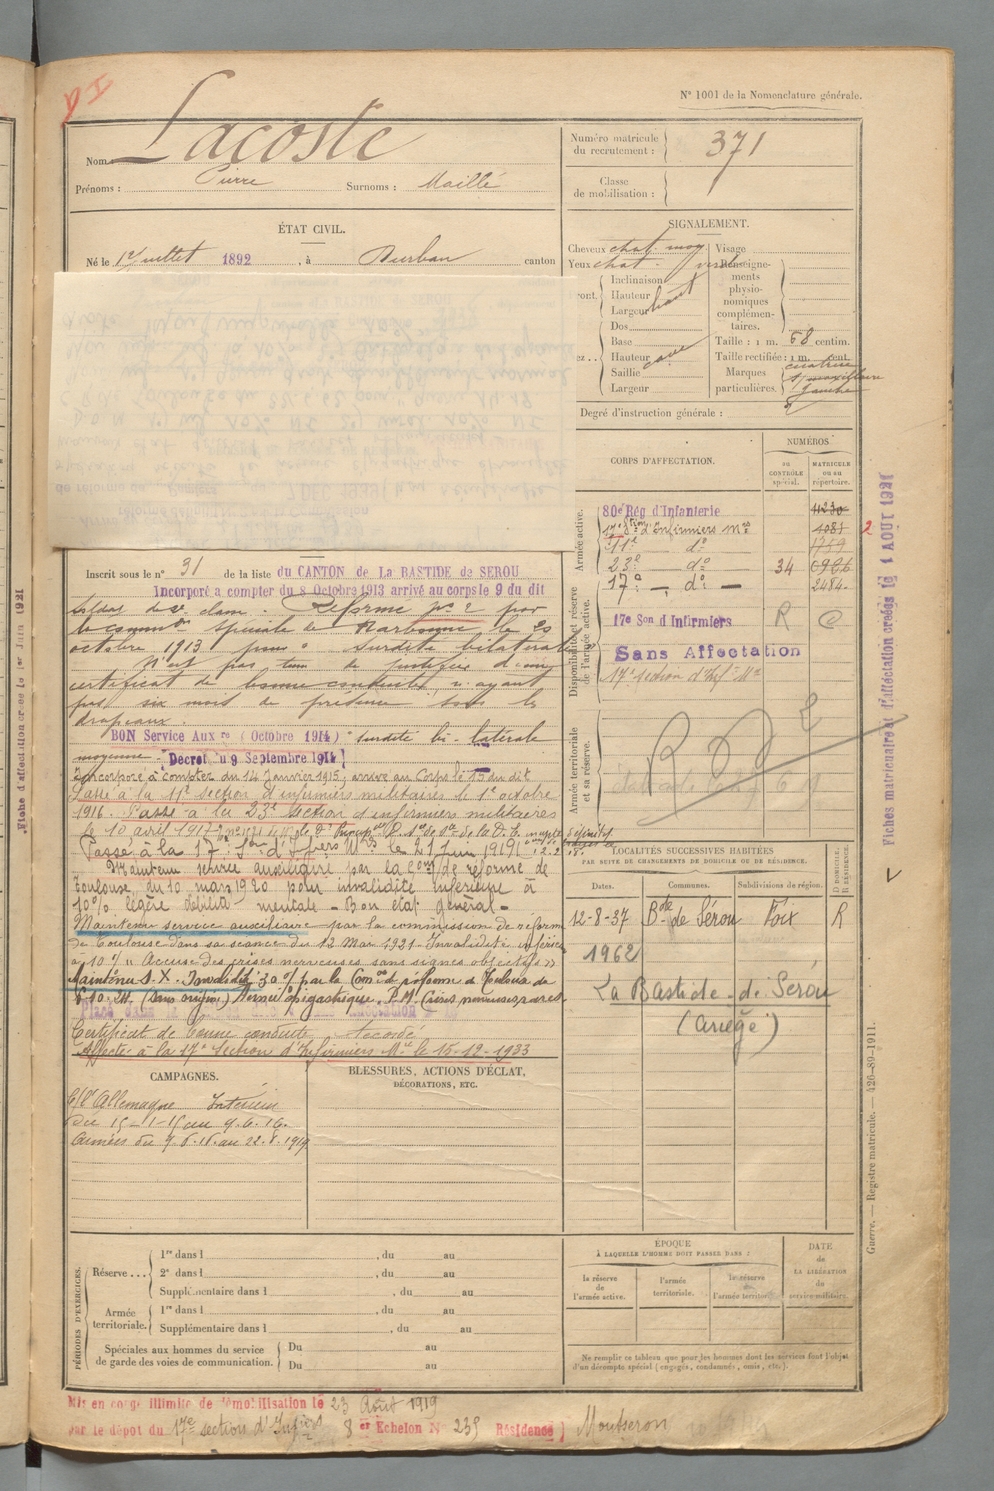 N° 1001 de la Nomenclature générale.
Nom : Lacoste
Prénoms : Pierre Surnoms : Maillé
Numéro matricule du recrutement : 371
Classe de mobilisation :
ÉTAT CIVIL.
Né le 1er juillet 1892, à Durban canton
SIGNALEMENT.
Cheveux chat. moy
Yeux chat.
Inclinaison
Hauteur haut
Largeur
Dos
Base
Hauteur cave
Saillie
Largeur
Visage
Renseignements physionomiques complémentaires.
Taille : 1 m. 68 centim.
Taille rectifiée : 1 m. cent.
Marques particulières. cicatrice maxillaire gauche
Degré d'instruction générale : 2
CORPS D'AFFECTATION.
NUMÉROS
au CONTRÔLE spécial.
MATRICULE ou au répertoire.
Armée active.
80e Rég d'Infanterie
17e Stion d'Infirmiers Mres 1081 2
11e do 1759
23e do 34
17e - do - 2484.
Disponibilité et réserve de l'armée active.
17e Son d Infirmiers R
Sans Affectation
17e section d'Inf. Mre
Armée territoriale et sa réserve.
Inscrit sous le n° 31 de la liste du CANTON de La BASTIDE de SEROU
Incorporé a compter du 8 Octobre 1913 arrivé au corps le 9 du dit
Soldat de 2e classe. Réformé no 2 par
la commion spéciale de Narbonne le 20
octobre 1913 pour surdité bilatérale
N'est pas tenu de justifier d'un
certificat de bonne conduite, n'ayant
pas six mois de présence sous les
drapeaux.
BON Service Auxre (Octobre 1914) surdité bi-latérale
moyenne - Decret du 9 Septembre 1914
Incorporé à compter du 14 Janvier 1915, arrivé au Corps le 15 du dit
Passé à la 11e section d'infirmiers militaires le 1e octobre
1916. Passé à la 23e section d'infirmiers militaires
le 10 avril 1917
Passé à la 17e Son d'Infiers Mres le 21 Juin 1919
Maintenu service auxiliaire par la Comon de réforme de
Toulouse du 10 mars 1920 pour invalidité inférieure à
10% légère débilité mentale - Bon état général -
Maintenu service auxiliaire par la commission de réforme
de Toulouse dans sa séance du 12 Mai 1921. Invalidité inférieure
à 10% "Accuse des crises nerveuses sans signes objectifs"
Maintenu S.X. Invalidité 30% par la Comon de réforme de Toulouse du
(sans origine) Hernie épigastrique.
Certificat de bonne conduite accordé
Affecté à la 17e Section d'Infirmiers Mre le 15-12-1933
LOCALITÉS SUCCESSIVES HABITÉES
PAR SUITE DE CHANGEMENTS DE DOMICILE OU DE RÉSIDENCE.
Dates. Communes. Subdivisions de région. D DOMICILE. R RÉSIDENCE.
12-8-37 Bde de Sérou Foix R
1962
La Bastide-de Sérou
(Ariège)
CAMPAGNES.
C/ l'Allemagne Intérieur
Du 15-1-15 au 9.6.16.
Armées du 9.6.16 au 22.8.1919
BLESSURES, ACTIONS D'ÉCLAT,
DÉCORATIONS, ETC.
PÉRIODES D'EXERCICES.
Réserve ... 1re dans l , du au
2e dans l , du au
Supplémentaire dans l , du au
Armée territoriale. 1re dans l , du au
Supplémentaire dans l , du au
Spéciales aux hommes du service de garde des voies de communication. Du au
Du au
ÉPOQUE
À LAQUELLE L'HOMME DOIT PASSER DANS :
la réserve de l'armée active.
l'armée territoriale.
la réserve de l'armée territoriale.
DATE de LA LIBÉRATION du service militaire.
Ne remplir ce tableau que pour les hommes dont les services font l'objet
d'un décompte spécial (engagés, condamnés, omis, etc.).
Mis en congé illimité de démobilisation le 23 Août 1919
par le dépôt du 17e section d'Infiers 8er Echelon N° 235 Résidence Montseron
Fiches matricule et d'affectation créées le 1 AOUT 1921
Guerre. — Registre matricule. — 426-89-1911.
Fiche d'affectation créée le 1er Juin 1921